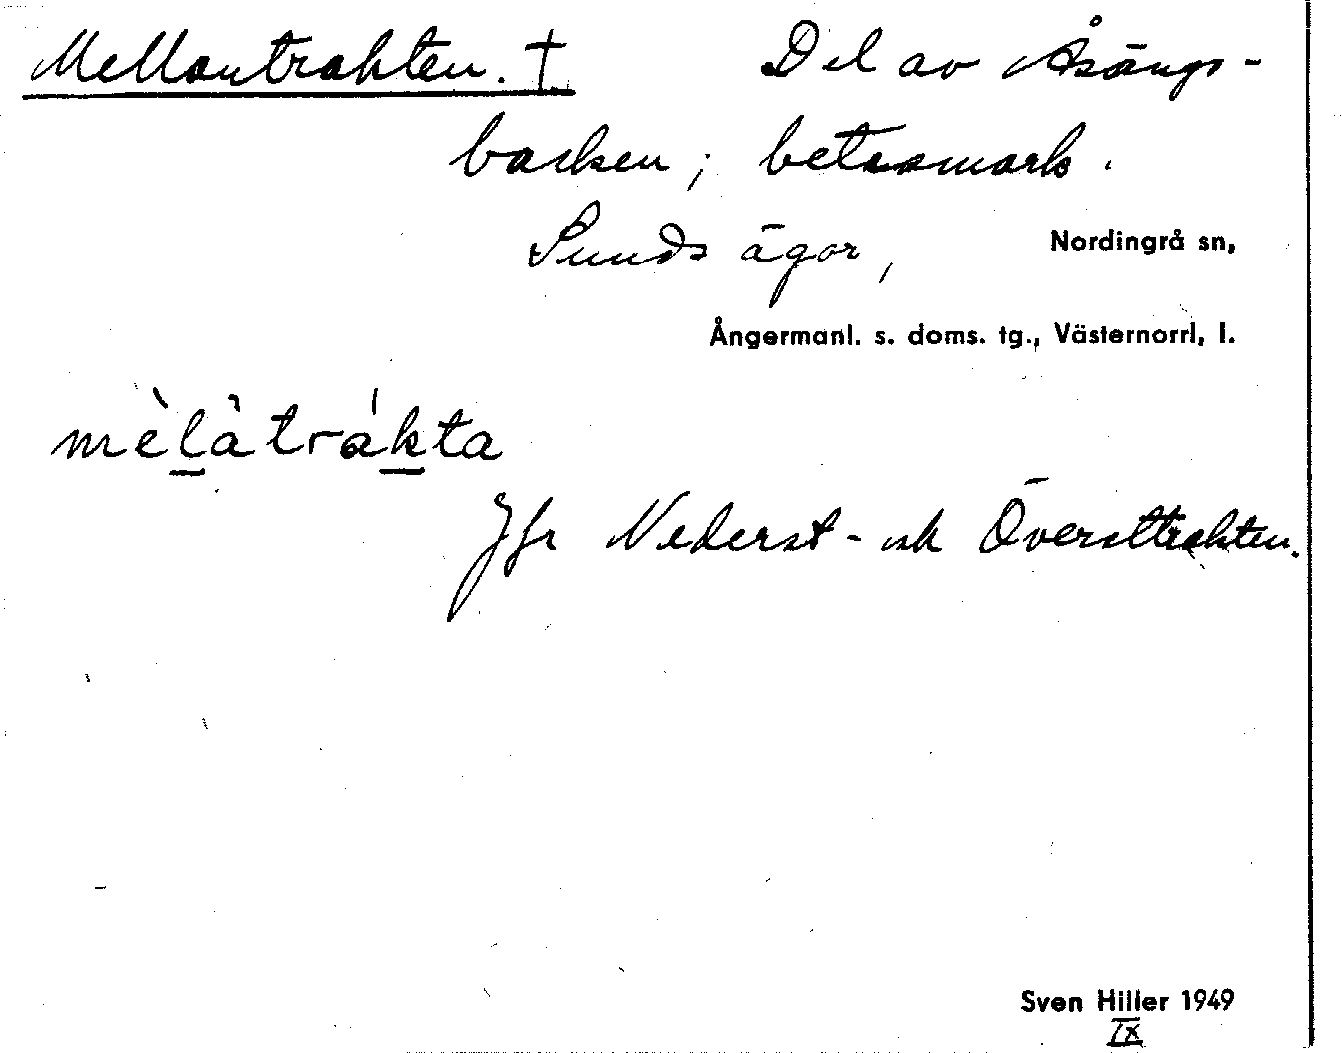 Mellantrakten. † Del av Åsängs-
backen; betesmark.
Sunds ägor, Nordingrå sn,
Ångermanl. s. doms. tg., Västernorrl. l.
mèlàtrákta
Jfr Nederst- och Översttrakten.
Sven Hiller 1949
IX